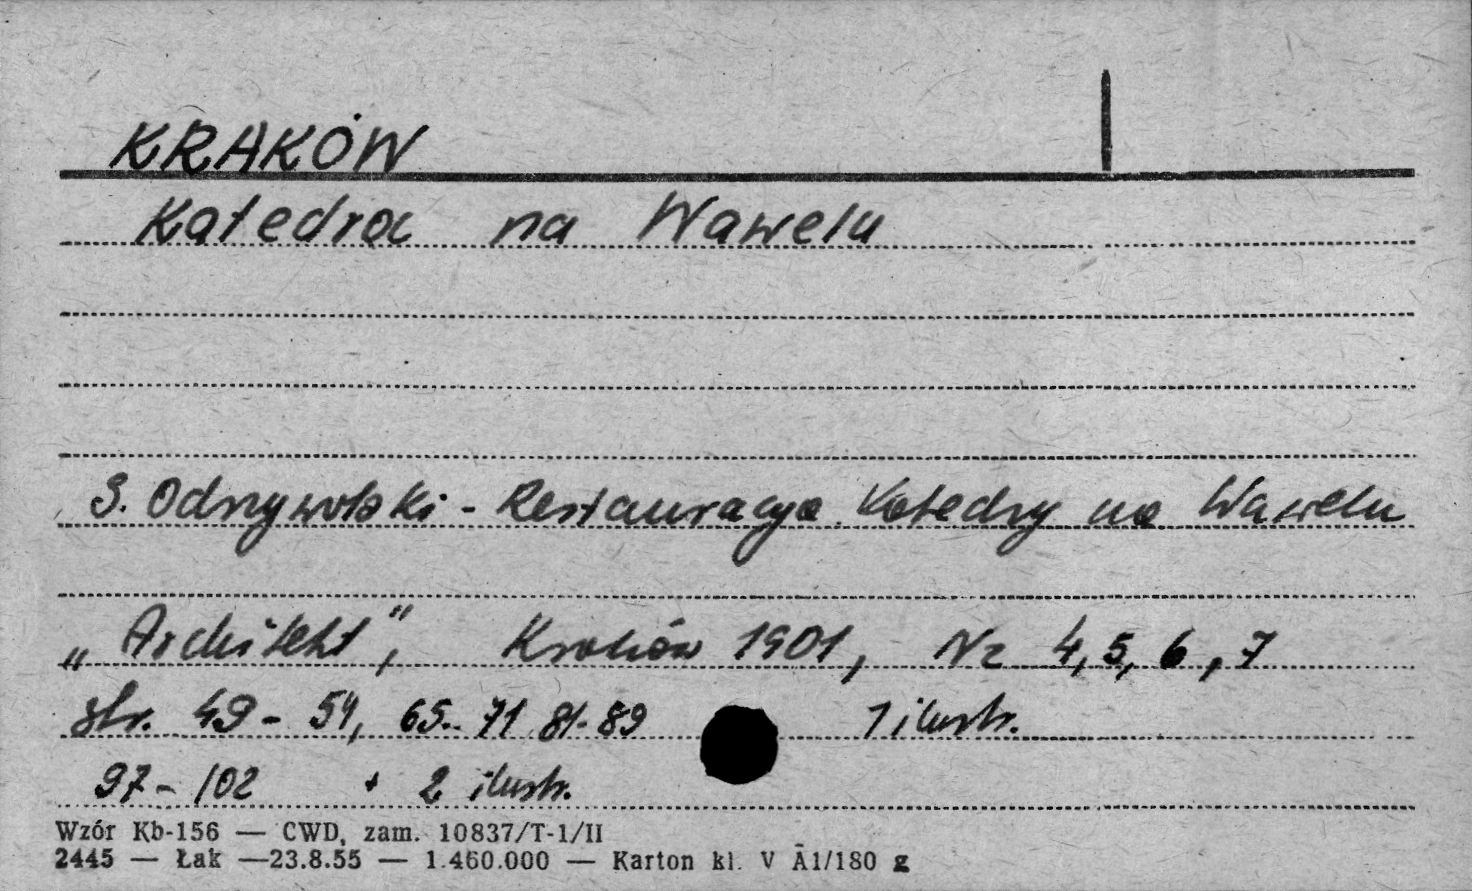 KRAKÓW
Katedra na Wawelu
S. Odrzywolski - Restauracya Katedry na Wawelu
„Architekt", Kraków 1901, Nr 4, 5, 6, 7
str. 49 - 54, 65 - 71 81 - 89 1 ilustr.
97 - 102 + 2 ilustr.
Wzór Kb-156 — CWD, zam. 10837/T-1/II
2445 — Łak —23.8.55 — 1.460.000 — Karton kl. V A1/180 g